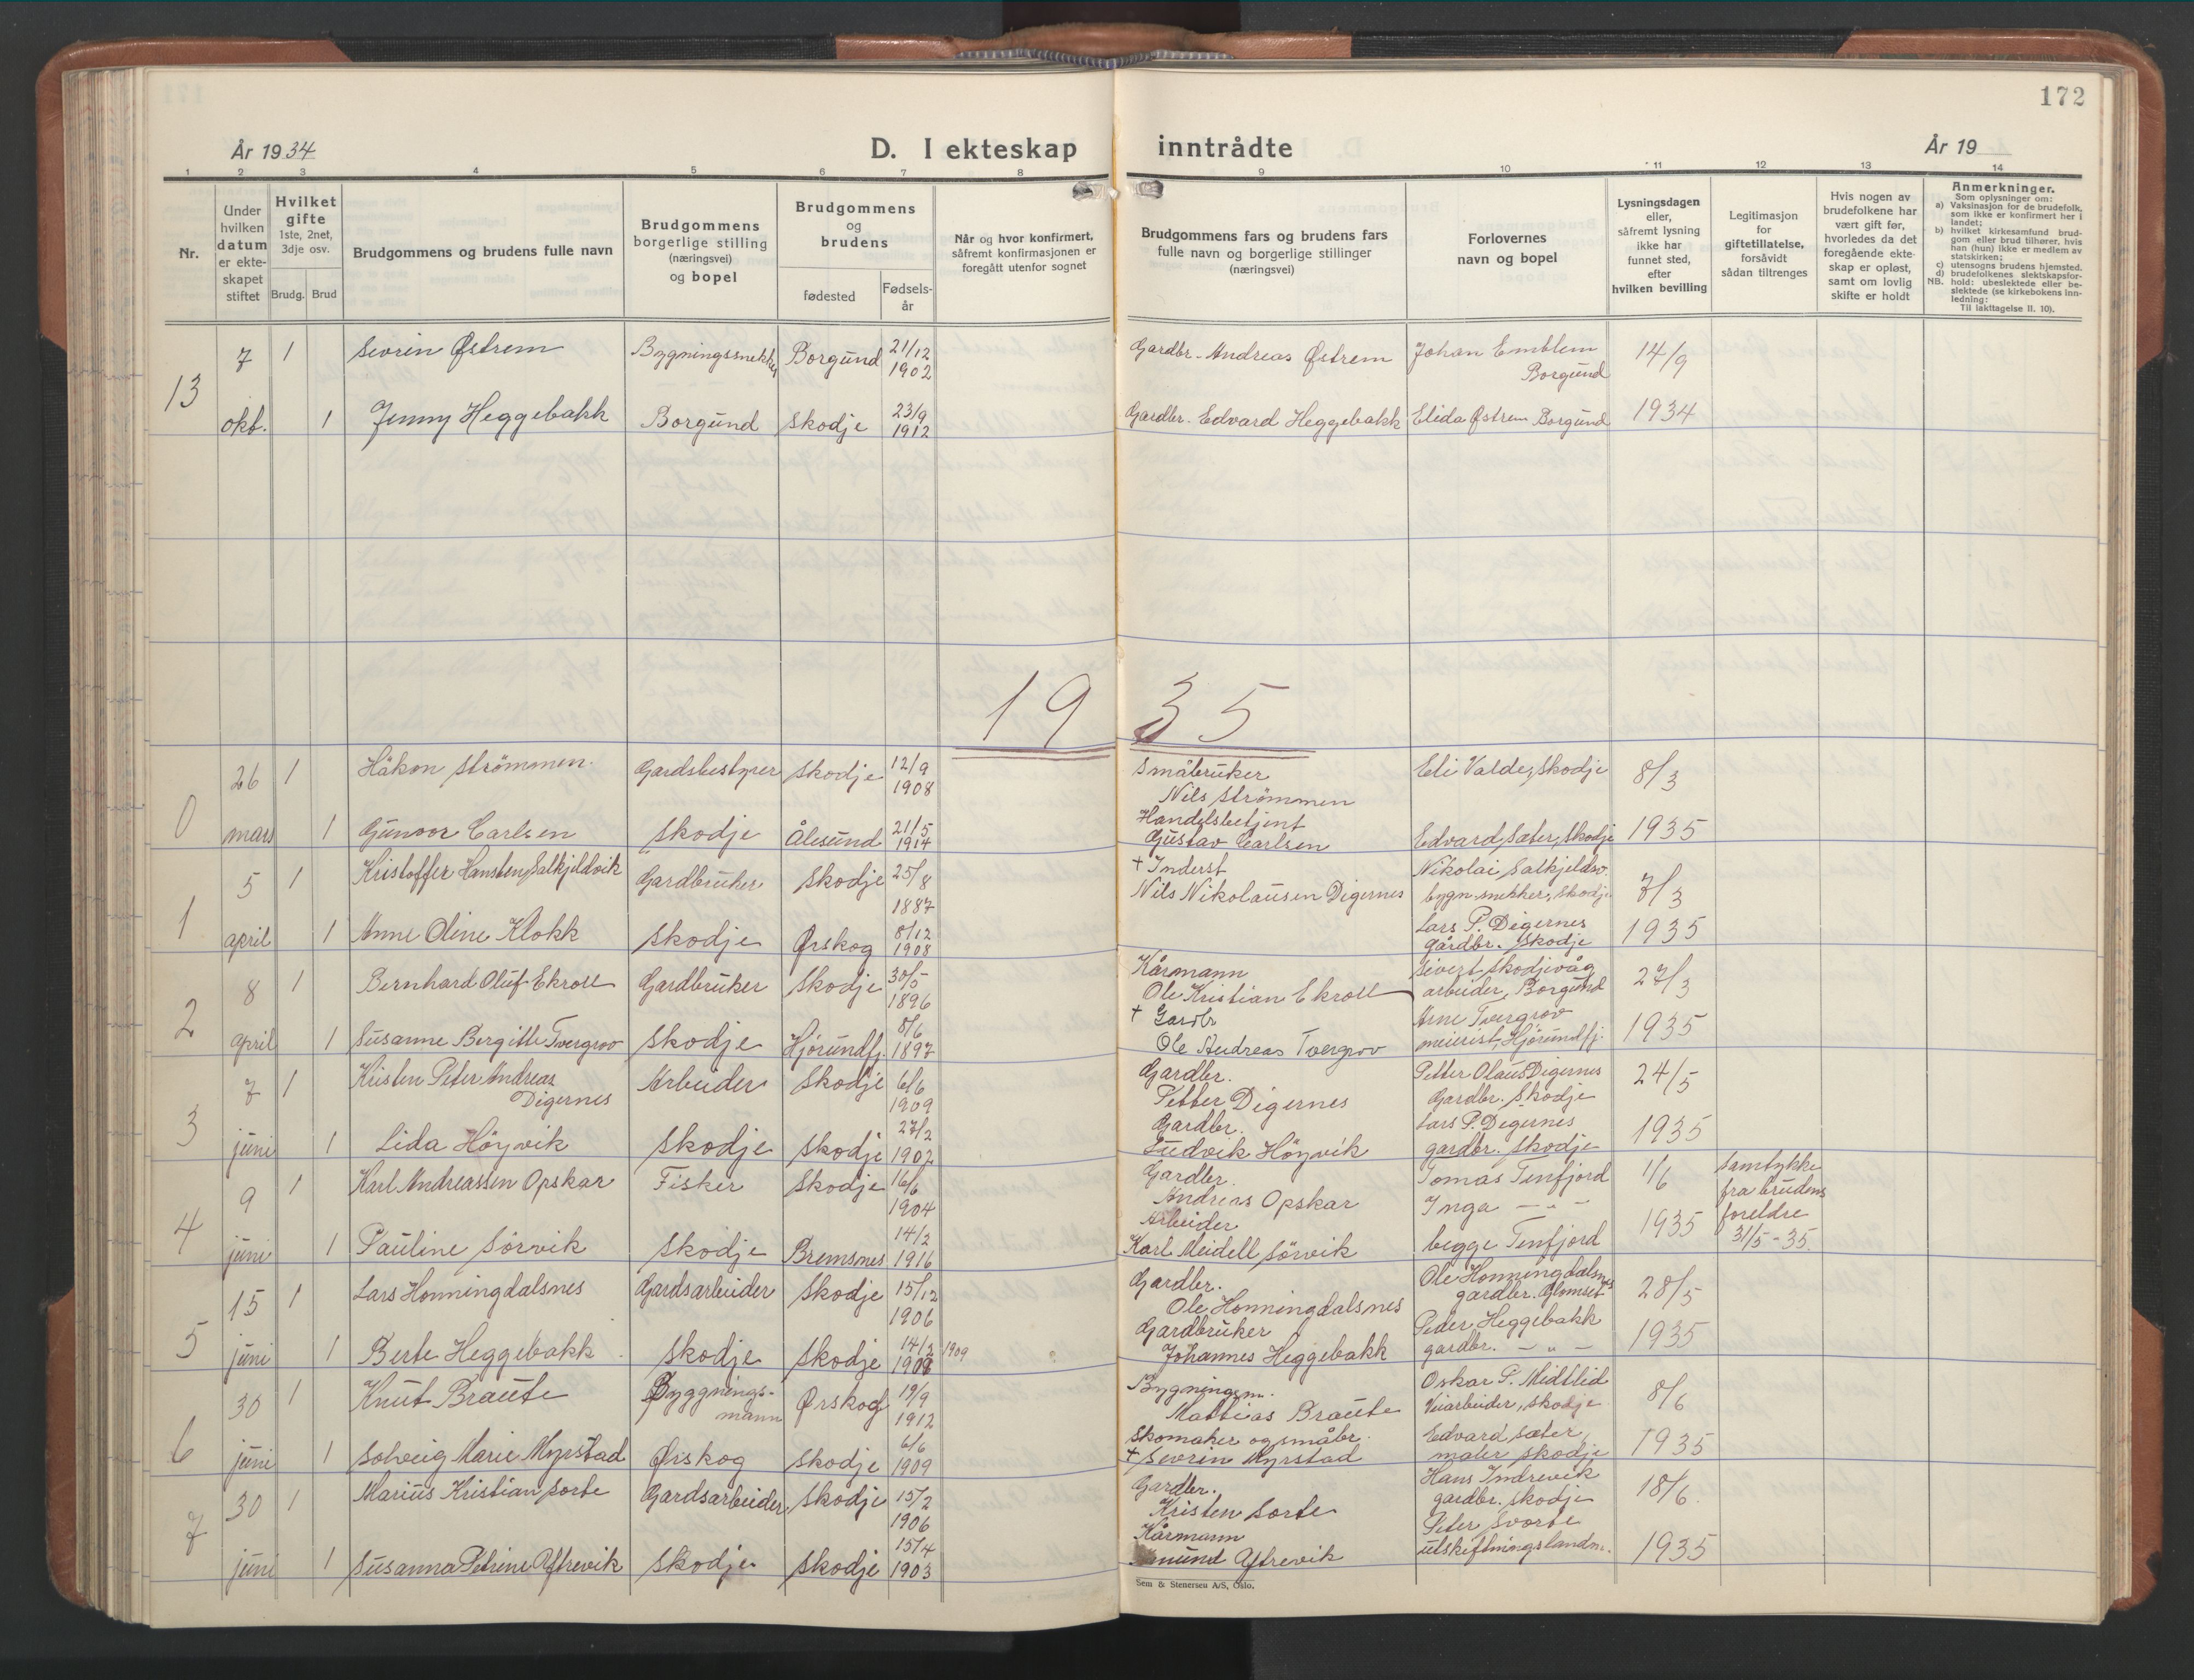 172
År 1934
D. I ekteskap inntrådte
År 19
1 2 3 4 5 6 7 8 9 10 11 12 13 14
Nr.
Under hvilken datum er ekteskapet stiftet
Hvilket gifte
1ste, 2net, 3dje osv.
Brudg. Brud
Brudgommens og brudens fulle navn
Brudgommens borgerlige stilling (næringsvei) og bopel
Brudgommens og brudens
fødested
Fødselsår
Når og hvor konfirmert, såfremt konfirmasjonen er foregått utenfor sognet
Brudgommens fars og brudens fars fulle navn og borgerlige stillinger (næringsvei)
Forlovernes navn og bopel
Lysningsdagen eller, såfremt lysning ikke har funnet sted, efter hvilken bevilling
Legitimasjon for giftetillatelse, forsåvidt sådan tiltrenges
Hvis nogen av brudefolkene har vært gift før, hvorledes da det foregående ekteskap er opløst, samt om lovlig skifte er holdt
Anmerkninger.
Som oplysninger om:
a) Vaksinasjon for de brudefolk, som ikke er konfirmert her i landet;
b) hvilket kirkesamfund brudgom eller brud tilhører, hvis han (hun) ikke er medlem av statskirken;
c) utensogns brudens hjemsted.
d) brudefolkenes slektskapsforhold: ubeslektede eller beslektede (se kirkebokens innledning:
NB.
Til iakttagelse II. 10).
13 7 1 Sevrin Østrem Bygningssnekker Borgund 21/12 1902 Gardbr. Andreas Østrem Johan Emblem Borgund 14/9
okt. 1 Jenny Heggebakk Borgund Skodje 23/9 1912 Gardbr. Edvard Heggebakk Elida Østrem Borgund 1934
1935
0 26 1 Håkon Strømmen Gardsbestyrer Skodje 12/9 1908 Småbruker Nils Strømmen Eli Valde, Skodje 8/3
mars 1 Gunvor Carlsen Skodje Ålesund 21/5 1914 Handelsbetjent Gustav Carlsen Edvard Sæter, Skodje 1935
1 5 1 Kristoffer Hansten Salkjeldvik Gardbruker Skodje 25/8 1887 + Inderst Nils Nikolausen Digernes Nikolai Salkjeldsv. bygn.snekker, Skodje 7/3
april 1 Anne Oline Klokk Skodje Ørskog 8/12 1908 Lars P. Digernes gårdbr. Skodje 1935
2 8 1 Bernhard Oluf Ekroll Gardbruker Skodje 30/5 1896 Kårmann Ole Kristian Ekroll Sivert Skodjevåg arbeider, Borgund 27/3
april 1 Susanne Bergitte Tvergrov Skodje Hjørundfj. 8/6 1897 + Gardbr Ole Andreas Tvergrov Arne Tvergrov meierist, Hjørundfj. 1935
3 7 1 Kristen Peter Andreas Digernes Arbeider Skodje 6/6 1909 Gardbr. Petter Digernes Petter Olaus Digernes Gardbr. Skodje 24/5
juni 1 Lida Høyvik Skodje Skodje 27/2 1902 Gardbr. Ludvik Høyvik Lars P. Digernes gardbr. Skodje 1935
4 9 1 Karl Andreassen Opskar Fisker Skodje 16/6 1904 Gardbr. Andreas Opskar Tomas Tenfjord 1/6 Samtykke fra brudens foreldre 31/5-35.
juni 1 Pauline Sørvik Skodje Bremsnes 14/2 1916 Arbeider Karl Meidell Sørvik Inga — " — begge Tenfjord 1935
5 15 1 Lars Honningdalsnes Gardsarbeider Skodje 15/12 1906 Gardbr. Ole Honningdalsnes Ole Honningdalsnes gardbr. Glomset 28/5
juni 1 Berte Heggebakk Skodje Skodje 14/2 1909 1909 Gardbruker Johannes Heggebakk Peder Heggebakk gardbr. — " — 1935
6 30 1 Knut Braute Byggningsmann Ørskog 19/9 1912 Bygningsm. Mattias Braute Oskar P. Midtlid Veiarbeider, Skodje 8/6
juni 1 Solveig Marie Myrstad Ørskog Skodje 6/6 1909 Skomaker og småbr. + Sevrin Myrstad Edvard Sæter, maler Skodje 1935
7 30 1 Marius Kristian Sorte Gardsarbeider Skodje 15/2 1906 Gardbr. Kristen Sorte Hans Indrevik gardbr. Skodje 18/6.
juni 1 Susanna Petrine Yttrevik Skodje Skodje 15/4 1903 Kårmann Amund Yttrevik Peter Svorte utskiftningslandm. 1935
Sem & Stenersen A/S, Oslo.